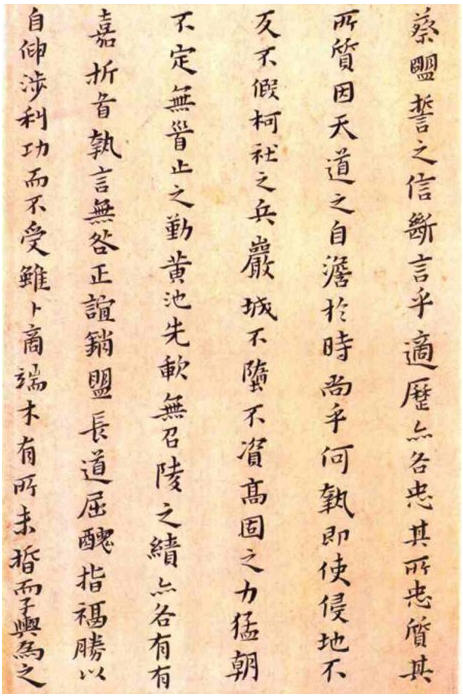 蔡盟誓之信斷言乎適歷亦各忠其所忠質其
所質因天道之自澹於時尚乎何執即使侵地不
反不假柯社之兵巖城不墮不資高固之力猛朝
不定無胥止之勤黃池先軟無召陵之績亦各有有
嘉折首執言無咎正誼銷盟長道屈醜指福勝以
自伸涉利功而不受雖卜商端木有所未悟而子輿為之